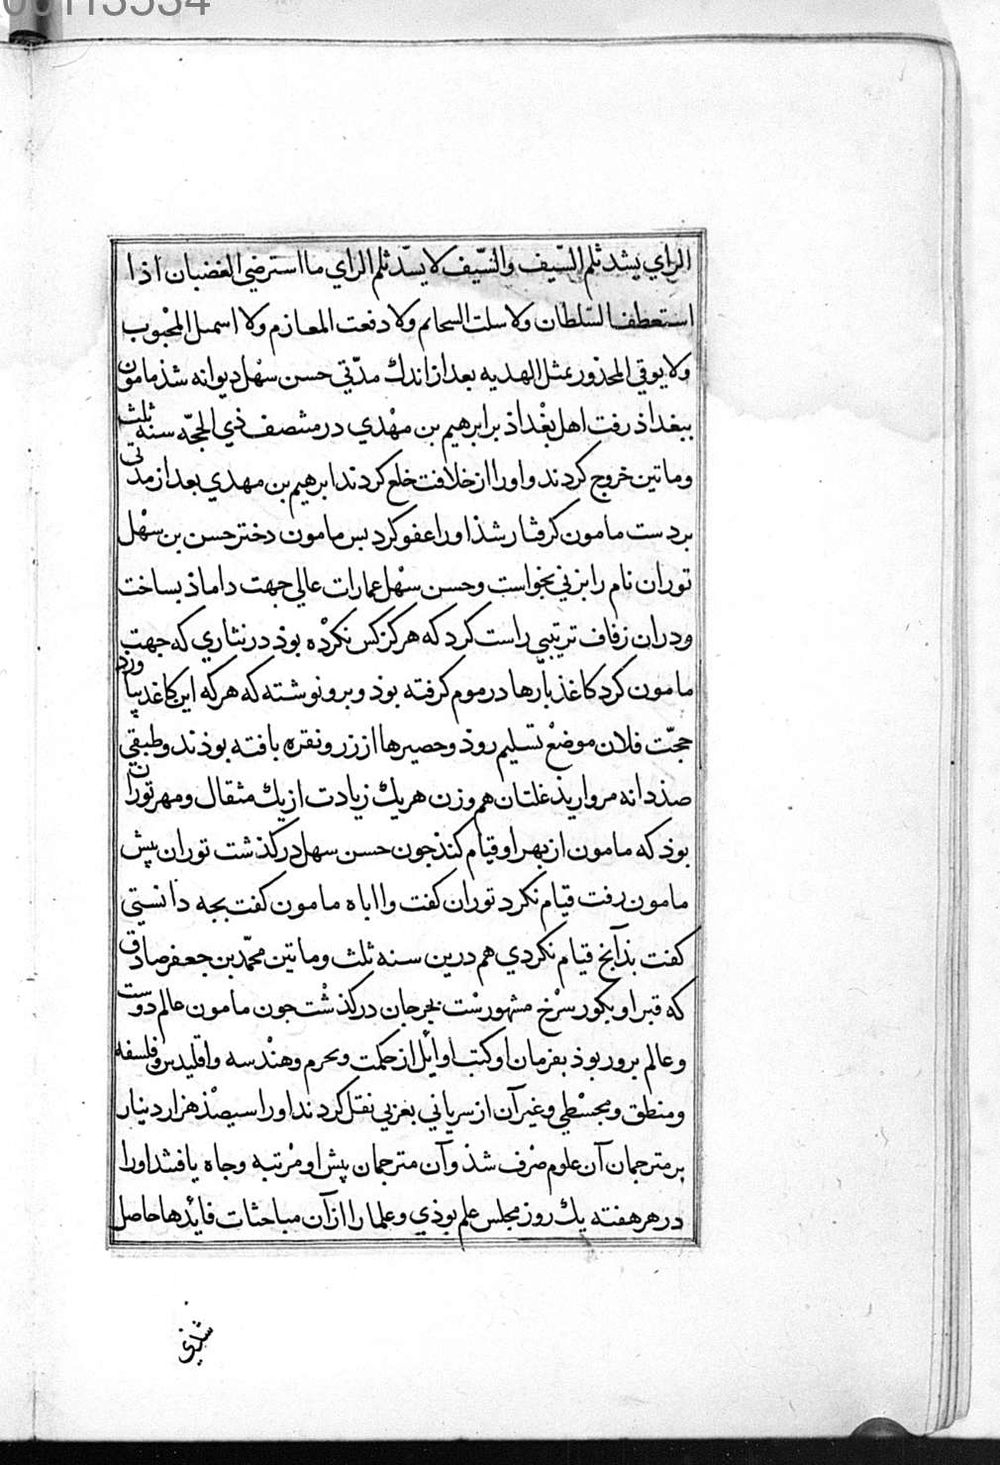 00113534
الراي يشد ثلم السّيف والسّيف لا يسدّ ثلم الراي ما استرضي الغضبان اذا
استعطف السّلطان ولا سلت السحائم ولا دفعت المعازم ولا اسميل المحْبوب
ولا يوقي المحذور بمثل الهديه بعد از اندك مدّتي حسن سهْل ديوانه شذ مامون
ببغداذ رفت اهل بغْداذ بر ابرهيم بن مهْدي در منتصف ذي الحجّه سنه ثلث
وماتين خروج كردند و اورا از خلافت خلع كردند ابرهيم بن مهدي بعد از مدتي
بر دست مامون كرفتار شذ اورا عفو كرد بس مامون دختر حسن بن سهْل
توران نام را بزني بخواست وحسن سهْل عمارات عالي جهت داماذ بساخت
ودران زفاف ترتيبي راست كرد كه هركز كس نكرْده بوذ در نثاري كه جهت
مامون كرد كاغذ بارها در موم كرفته بوذ و برو نوشته كه هركه اين كاغد بياورد
حجّت فلان موضعْ تسليم روذ وحصيرها از زر ونقره بافته بوذند وطبقي
صذ دانه مرواريذ غلتان هم وزن هريك زيادت از يك مثقال و مهر توران
بوذ كه مامون از بهر او قيام كند جون حسن سهل در كذشت توران پيش
مامون رفت قيام نكرد توران كفت وااباه مامون كفت بجه دانستي
كفت بذآنج قيام نكردي هم درين سنه ثلث وماتين محمّد بن جعفر صادق
كه قبر او بكور سرْخ مشهورسْت بجرجان در كذشْت جون مامون عالم دوست
وعالم برور بوذ بفرمان او كتب اوايْل از حكمت ونجوم وهنْدسه واقليدس وفلسفه
ومنطق ومجسْطي وغير آن از سرياني بعزبي نقل كردند اورا سيصذ هزار دينار
بر مترجمان آن علوم صرف شذ وآن مترجمان پيش او مرْتبه وجاه يافتند اورا
در هر هفته يك روز مجلس علم بوذي وعلما را از آن مباحثات فايْدها حاصل
شذي